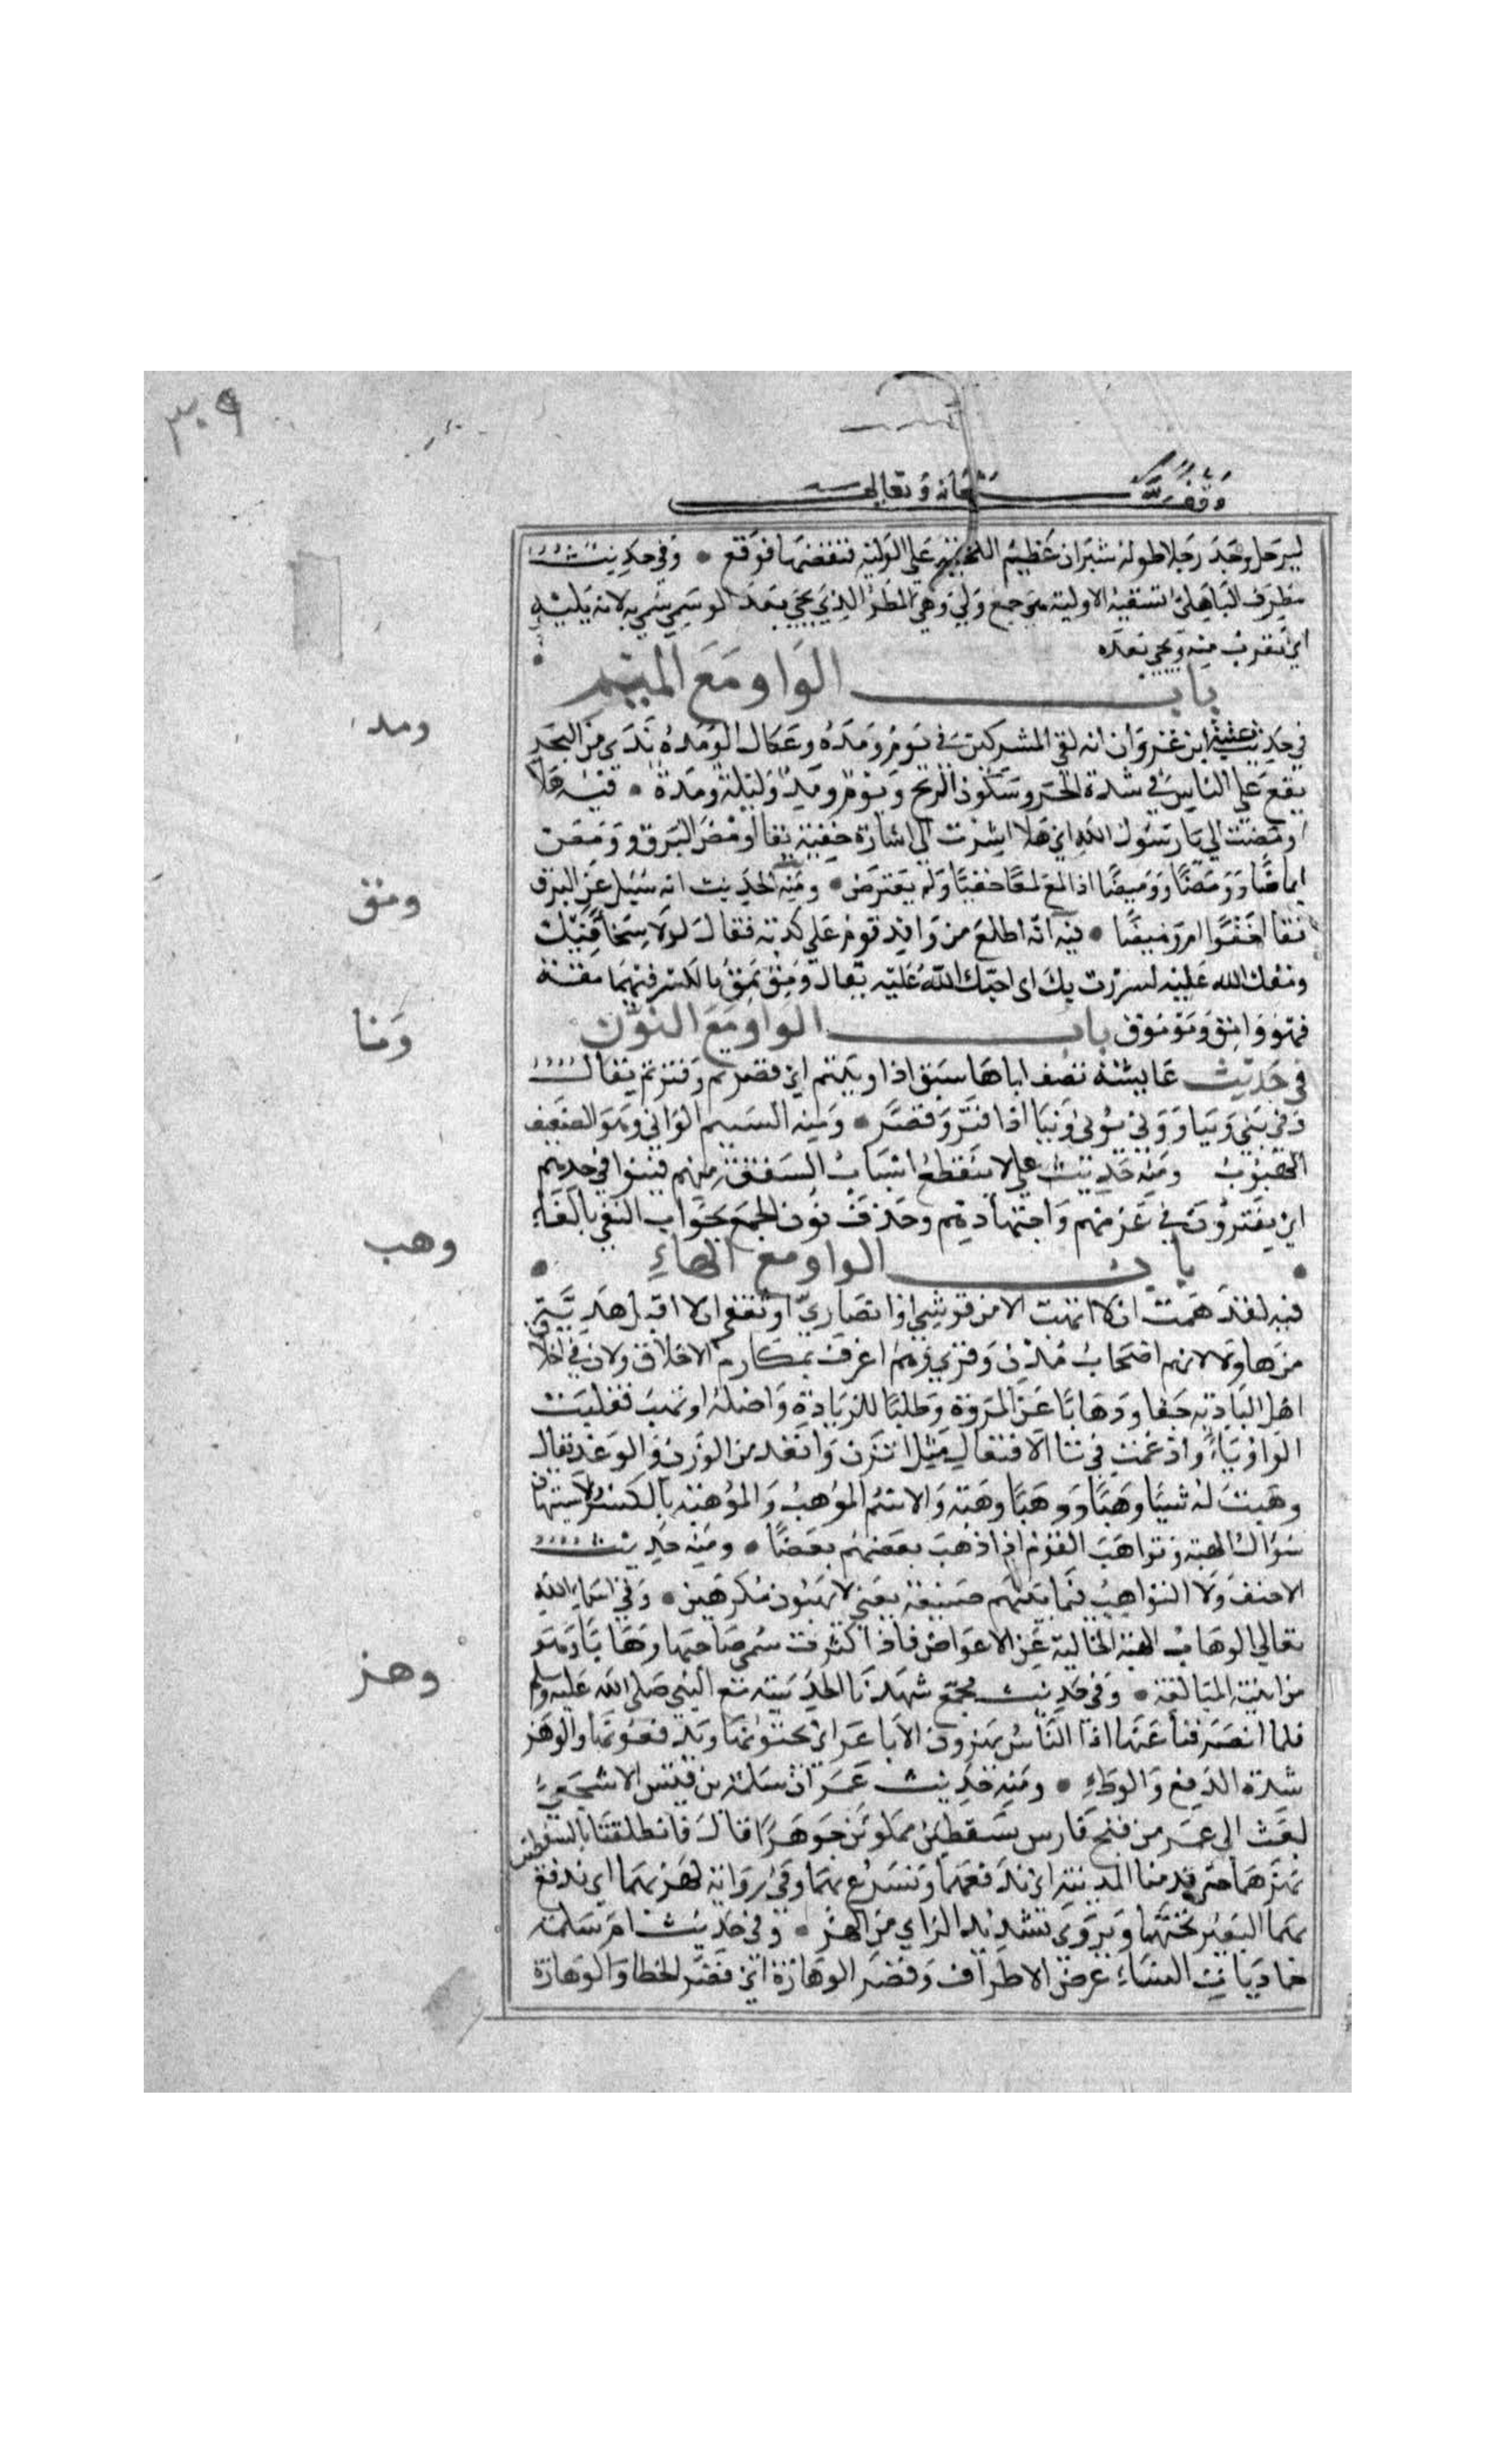 ٣٠٩
وقف لله سبحانه وتعالى
ليرحل وجد رجلا طوله شبران عظيم اللحية على الولية فنفضها فوقع • وفي حديث
مطرف الباهلي تسقيه الاولية هي جمع ولي وهي المطر الذي يجي بعد الوسمي سمي به لانه يليه
اي يقرب منه ويجي بعده
باب الواو مع الميم
ومد
في حديث عتبة ابن غزوان انه لقي المشركين في يوم ومده وعكاك الومده ندي من البحر
يقع على الناس في شدة الحر وسكون الريح ويوم ومد وليلة ومدة • فيه هلا
اومضت الي يا رسول الله اي هلا اشرت الي اشارة خفية يقال اومض البرق وومض
ايماضا وومضا ووميضا اذا لمع لمعا خفيا ولم يعترض • ومنه الحديث انه سئيل عن البرق
ومق
فقال اخفوا ام وميضا • فيه انه اطلع من وافد قوم على كذبه فقال لولا سخا فيك
ومقك الله عليه لسررت بك اى احبك الله عليه يقال ومق يمق بالكسر فيهما مقة
فهو وامق وموموق باب الواو مع النون
ونا
في حديث عايشة تصف اباها سبق اذا ونيتم اي قصرتم وفترتم يقال
ونى يني ونيا وونى يونى ونيا اذا فتر وقصر • ومنه النسيم الواني وهو الضعيف
الهبوب ومنه حديث علي لا ينقطع اسباب الشفقة منهم فينوا في جدهم
اي يفترون في عزمهم واجتهادهم وحذف نون الجمع لجواب النفي بالفاء
وهب
• باب الواو مع الهاء •
فيه لقد هممت ان لا اتهب الا من قرشي او انصاري او ثقفي اي لا اقبل هدية
من هاولا لانهم اصحاب مدن وقرى وهم اعرف بمكارم الاخلاق ولان في اخلا
اهل البادية جفا وذهابا عن المروة وطلبا للزيادة واصله اوتهب فقلبت
الواو ياء وادغمت في تا الافتعال مثل اتزن واتعد من الوزن والوعد يقال
وهبت له شيئا وهبا ووهبا وهبة والاسم الموهب والموهبة بالكسر والاستيهاب
سؤال الهبة وتواهب القوم اذا وهب بعضهم بعضا • ومنه حديث
الاحنف ولا التواهب فيما بينهم ضيعة يعني لا يهبون مكرهين • وفي اسماء الله
تعالى الوهاب الهبة الخالية عن الاعواض فاذا كثرت سمي صاحبها وهابا وهو
وهز
من ابنية المبالغة • وفي حديث مجمع شهدنا الحديبية مع النبي صلى الله عليه وسلم
فلما انصرفنا عنها اذا الناس يهزون الاباعر اي يحثونها ويدفعونها والوهز
شدة الدفع والوطء • ومنه حديث عمر ان سلمة بن قيس الاشجعي
بعث الى عمر من فتح فارس بسفطين مملوئين جوهرا قال فانطلقنا بالسفطين
نهزهما حتى قدمنا المدينة اي ندفعهما ونسرع بهما وفي رواية نهز بهما اي ندفع
بهما البعير تحتهما ويروى بتشديد الزاي من الهز • وفي حديث ام سلمة
حماديات النساء غض الاطراف وقصر الوهازة اي قصر الخطا والوهازة